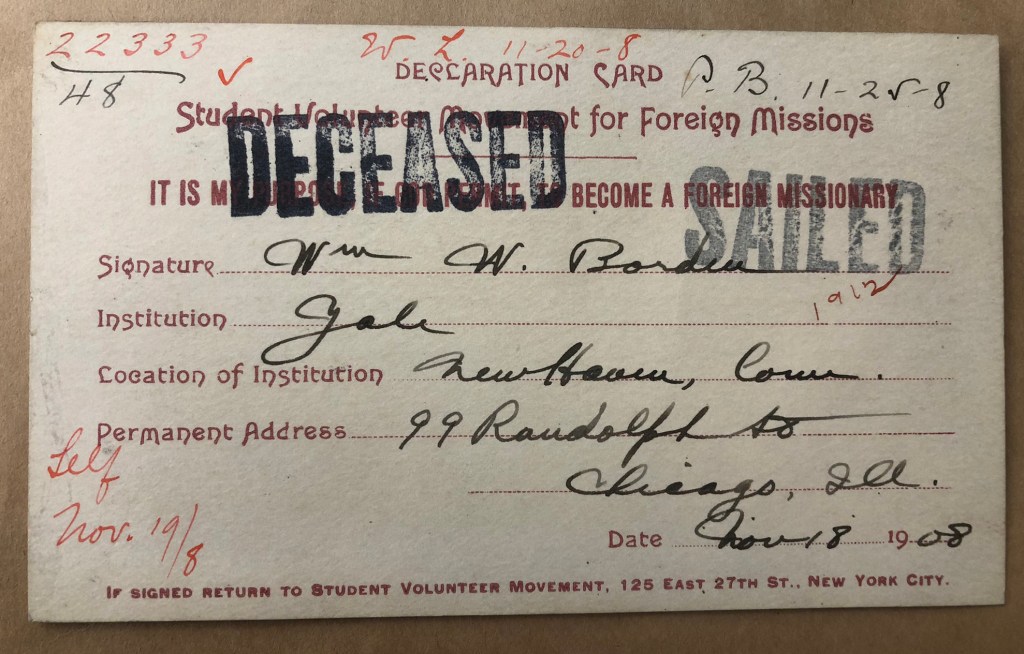 22333 W. L. 11-20-8
48 ✓ DECLARATION CARD P. B. 11-25-8
Student Volunteer Movement for Foreign Missions
DECEASED
IT IS MY PURPOSE, IF GOD PERMIT, TO BECOME A FOREIGN MISSIONARY
SAILED
Signature Wm W. Borden
1912
Institution Yale
Location of Institution New Haven, Conn.
Permanent Address 99 Randolph St
Chicago, Ill.
Self
Nov. 19/8
Date Nov 18 1908
IF SIGNED RETURN TO STUDENT VOLUNTEER MOVEMENT, 125 EAST 27TH ST., NEW YORK CITY.